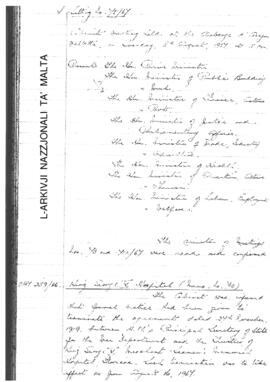 Sitting No. 74/67
Cabinet Meeting held at the Auberge d'Aragon
Valletta, on Monday, August, 1967 at 5 p.m.
Present: The Hon. Prime Minister
The Hon. Minister of Public Building
& Works
The Hon. Minister of Finance, Customs
& Ports
The Hon. Minister of Justice and
Parliamentary Affairs
The Hon. Minister of Trade, Industry
& Agriculture
The Hon. Minister of Health
The Hon. Minister of Education, Culture
& Tourism
The Hon. Minister of Labour, Employment
& Welfare.
The minutes of Meetings
Nos. and /67 were read and confirmed
L-ARKIVJI NAZZJONALI TA' MALTA
OPM 259/66
King George V Hospital (Memo. No. )
The Cabinet was informed
that formal notice had been given to
terminate the agreement dated 24th November,
1919, between H.M's Principal Secretary of State
for the War Department and the Trustees of
King George V Merchant Seamen's Memorial
Hospital Floriana. The termination was to take
effect as from August 16, 1967.